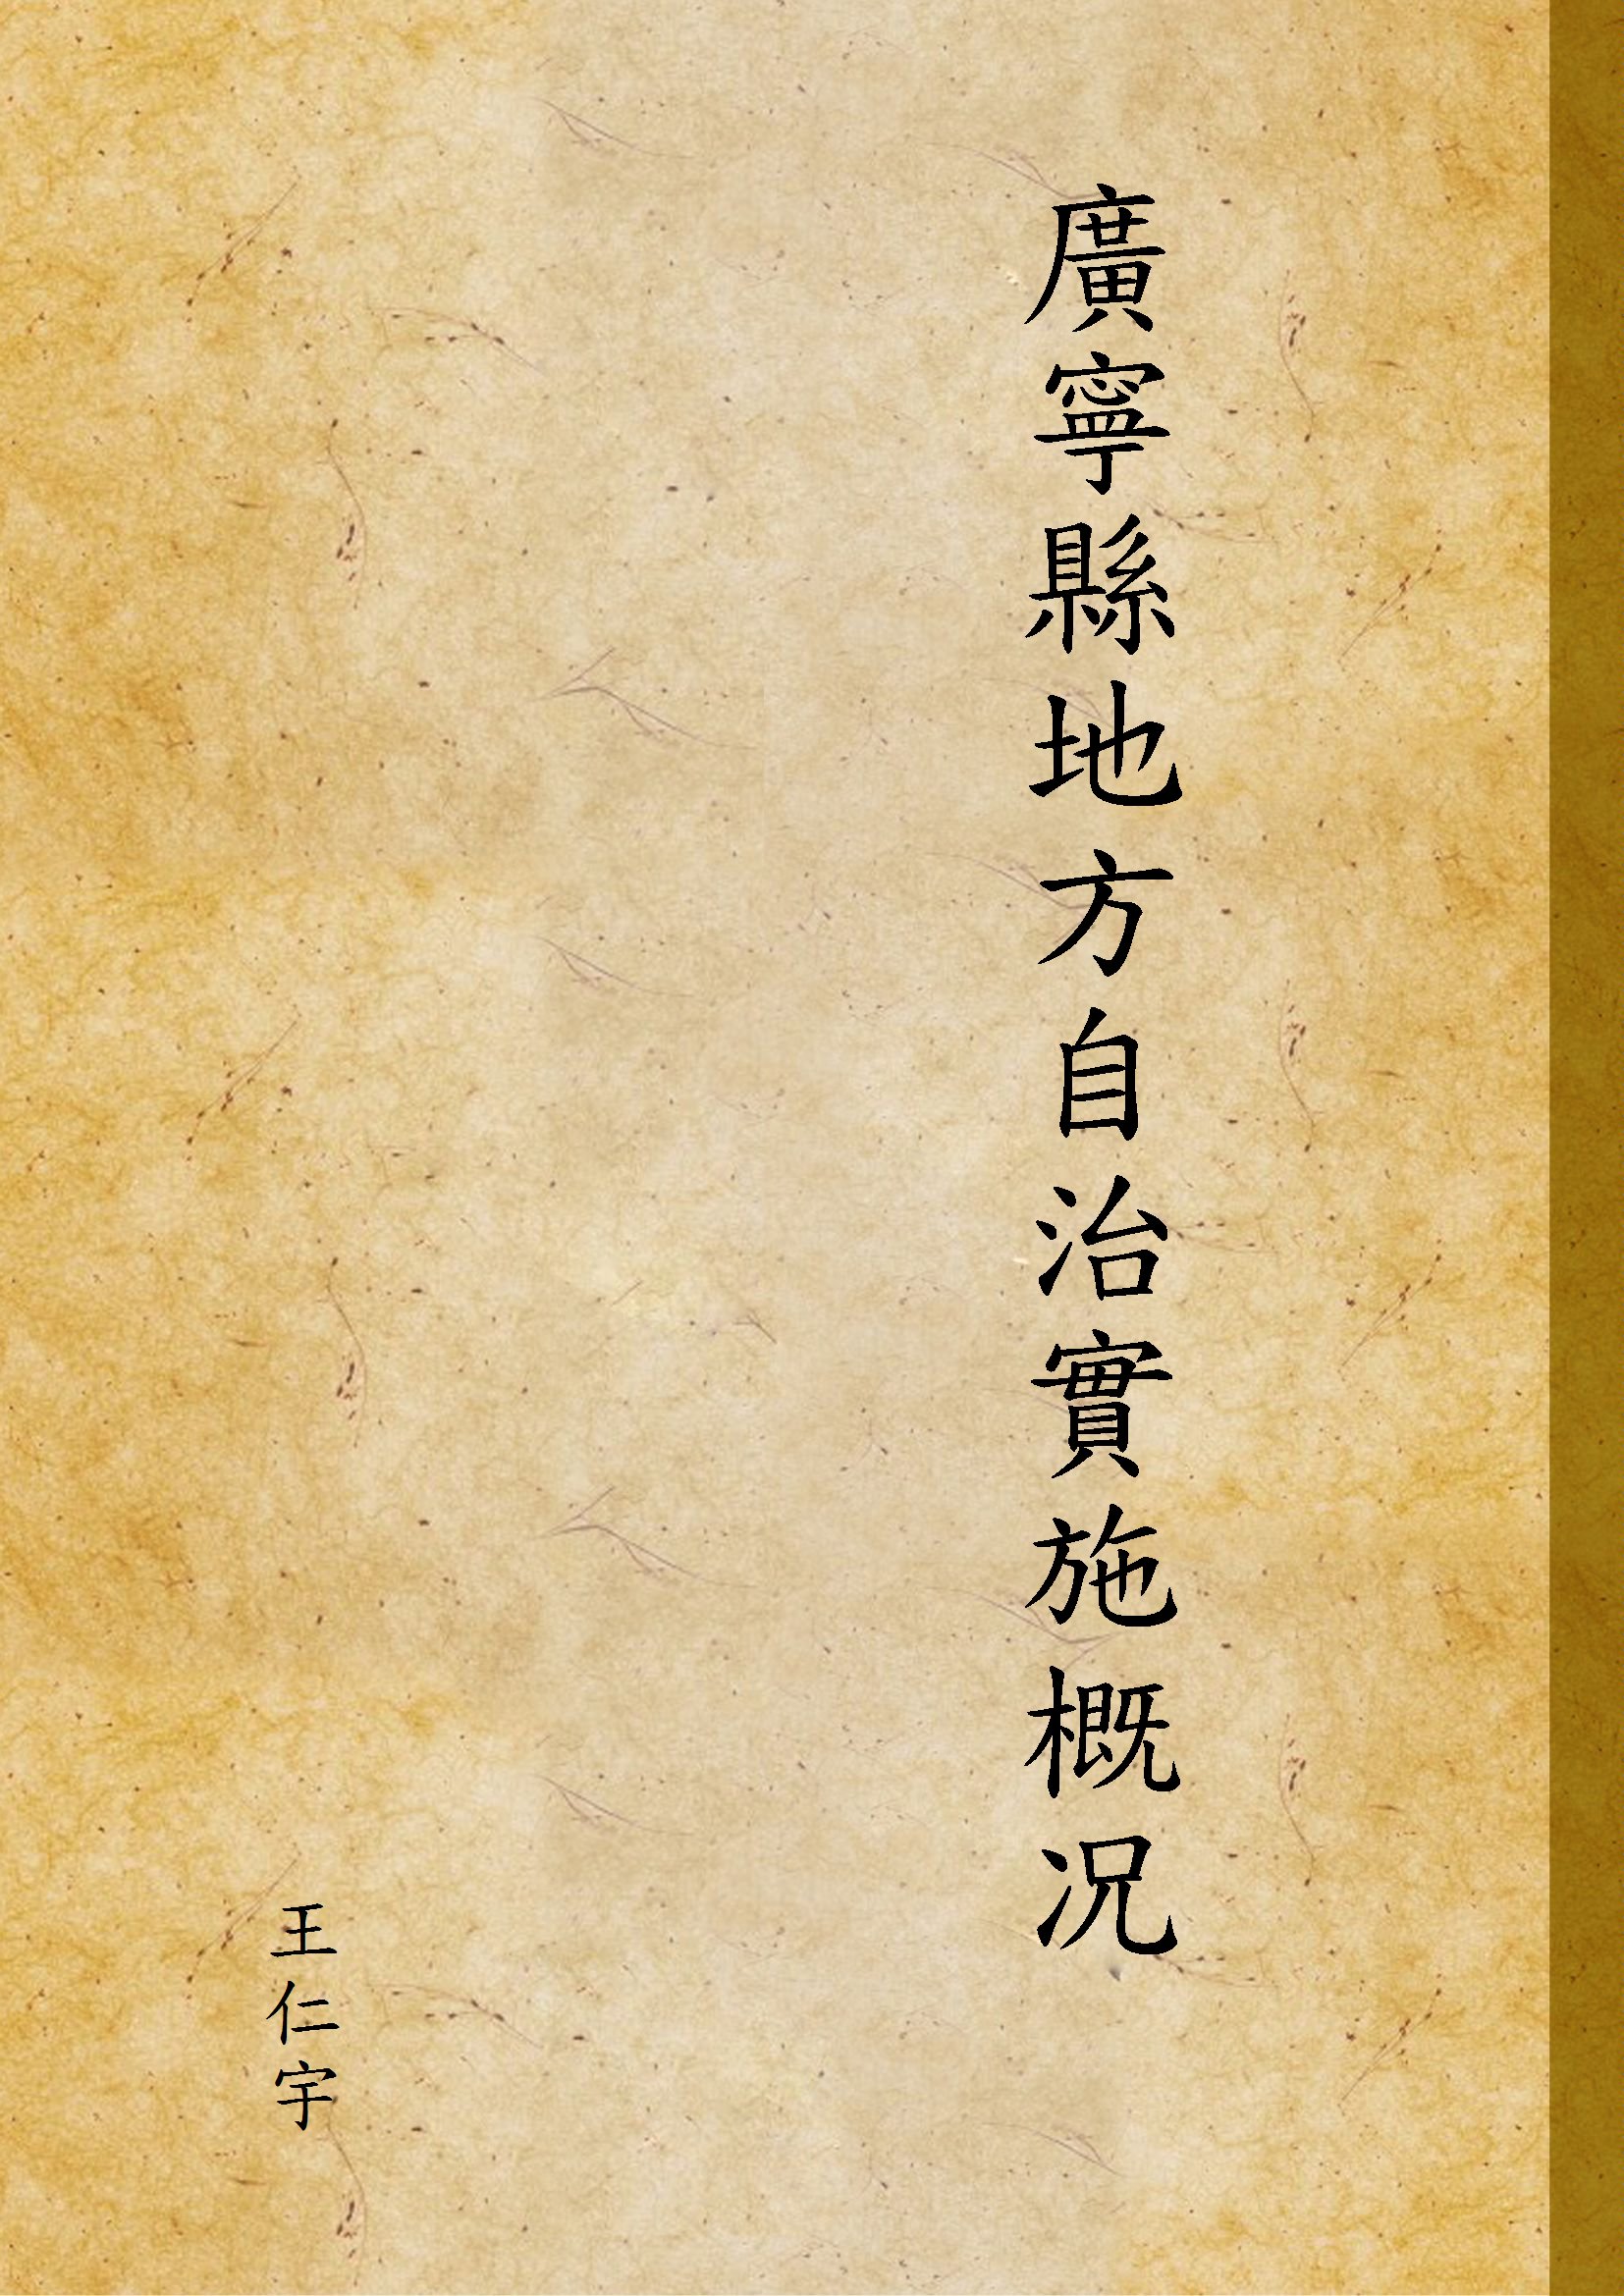 廣寧縣地方自治實施概况
王仁宇